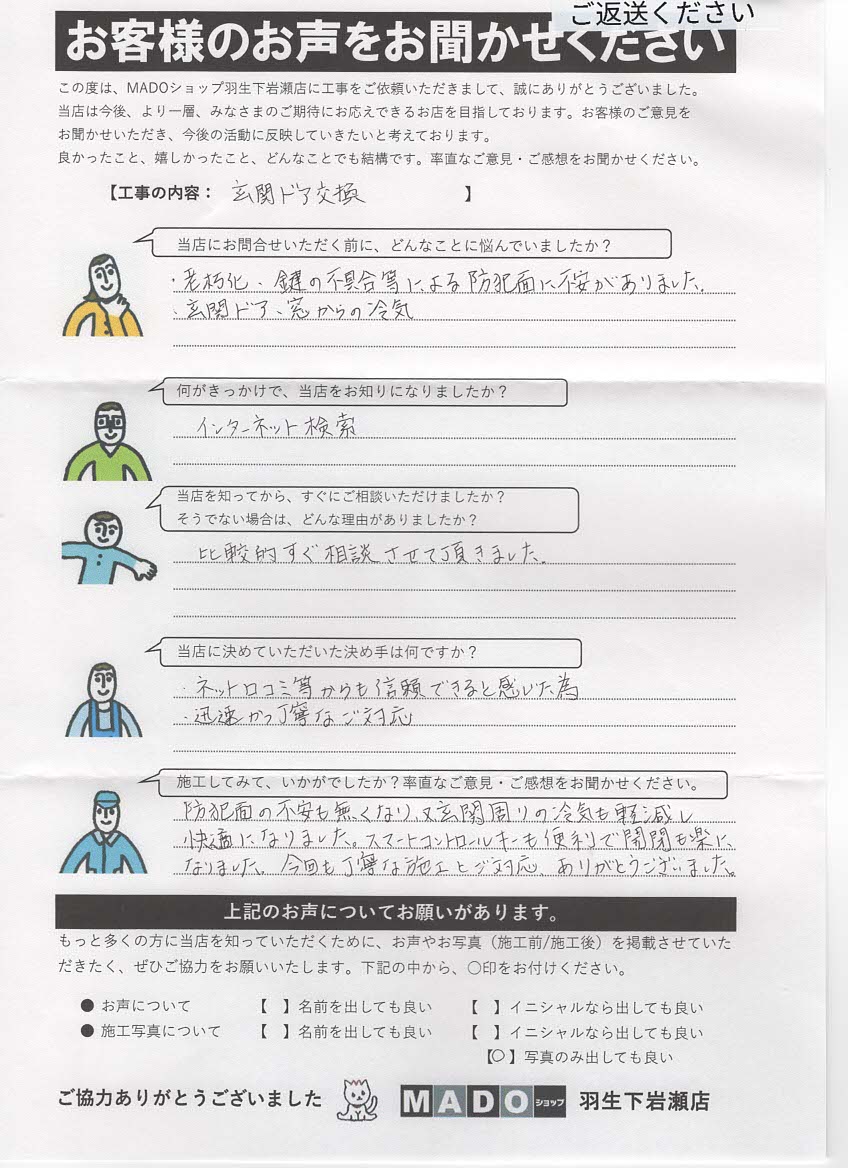 ご返送ください
お客様のお声をお聞かせください
この度は、MADOショップ羽生下岩瀬店に工事をご依頼いただきまして、誠にありがとうございました。
当店は今後、より一層、みなさまのご期待にお応えできるお店を目指しております。お客様のご意見を
お聞かせいただき、今後の活動に反映していきたいと考えております。
良かったこと、嬉しかったこと、どんなことでも結構です。率直なご意見・ご感想をお聞かせください。
【工事の内容： 玄関ドア交換 】
当店にお問合せいただく前に、どんなことに悩んでいましたか？
・老朽化、鍵の不具合等による防犯面に不安がありました。
・玄関ドア、窓からの冷気
何がきっかけで、当店をお知りになりましたか？
インターネット検索
当店を知ってから、すぐにご相談いただけましたか？
そうでない場合は、どんな理由がありましたか？
比較的すぐ相談させて頂きました。
当店に決めていただいた決め手は何ですか？
・ネット口コミ等からも信頼できると感じた為
・迅速かつ丁寧なご対応
施工してみて、いかがでしたか？率直なご意見・ご感想をお聞かせください。
防犯面の不安も無くなり、又玄関周りの冷気も軽減し
快適になりました。スマートコントロールキーも便利で開閉も楽に
なりました。今回も丁寧な施工とご対応、ありがとうございました。
上記のお声についてお願いがあります。
もっと多くの方に当店を知っていただくために、お声やお写真（施工前/施工後）を掲載させていた
だきたく、ぜひご協力をお願いいたします。下記の中から、○印をお付けください。
● お声について 【 】名前を出しても良い 【 】イニシャルなら出しても良い
● 施工写真について 【 】名前を出しても良い 【 】イニシャルなら出しても良い
【○】写真のみ出しても良い
ご協力ありがとうございました MADO ショップ 羽生下岩瀬店